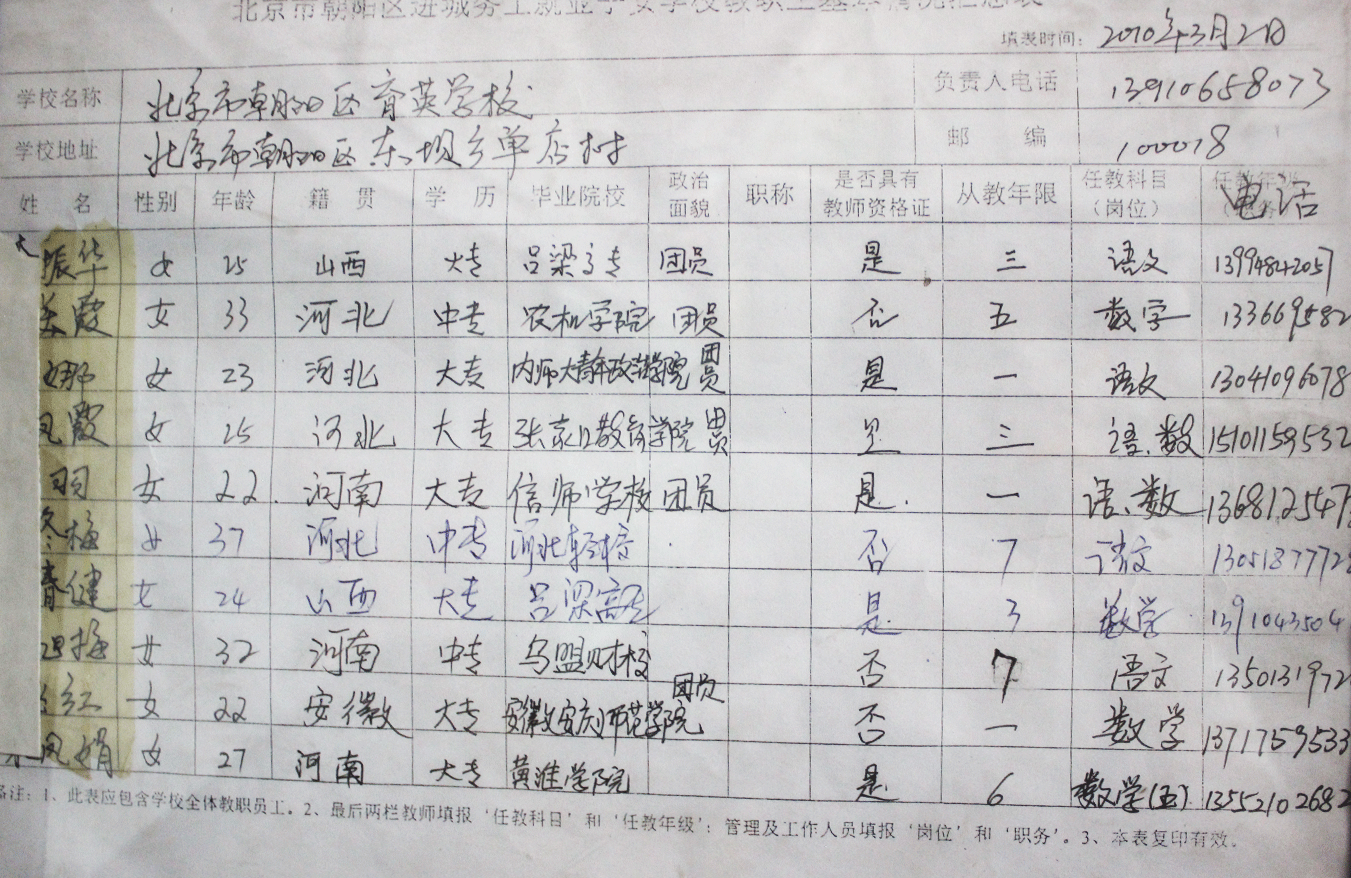 北京市朝阳区进城务工就业子女学校教职工基本情况汇总表
填表时间: 2010年3月2日
学校名称 北京市朝阳区育英学校 负责人电话 13910658073
学校地址 北京市朝阳区东坝乡单店村 邮 编 100018
姓 名 性别 年龄 籍 贯 学 历 毕业院校 政治面貌 职称 是否具有教师资格证 从教年限 任教科目(岗位) 电话
振华 女 25 山西 大专 吕梁高专 团员 是 三 语文 13994842057
霞 女 33 河北 中专 农机学院 团员 否 五 数学 133669582
娜 女 23 河北 大专 内师大青年政治学院 团员 是 一 语文 13041096078
凤霞 女 25 河北 大专 张家口教育学院 团员 是 三 语.数 15101159532
羽 女 22 河南 大专 信师学校 团员 是 一 语、数 136812547
冬梅 女 37 河北 中专 河北 否 7 语文 1305187772
春健 女 24 山西 大专 吕梁高专 是 3 数学 1391043504
梅 女 32 河南 中专 乌盟财校 否 7 语文 1350131972
红 女 22 安徽 大专 安徽安庆师范学院 团员 否 一 数学 1371759533
凤娟 女 27 河南 大专 黄淮学院 是 6 数学(五) 13552102682
备注:1、此表应包含学校全体教职员工。2、最后两栏教师填报‘任教科目’和‘任教年级’;管理及工作人员填报‘岗位’和‘职务’。3、本表复印有效。